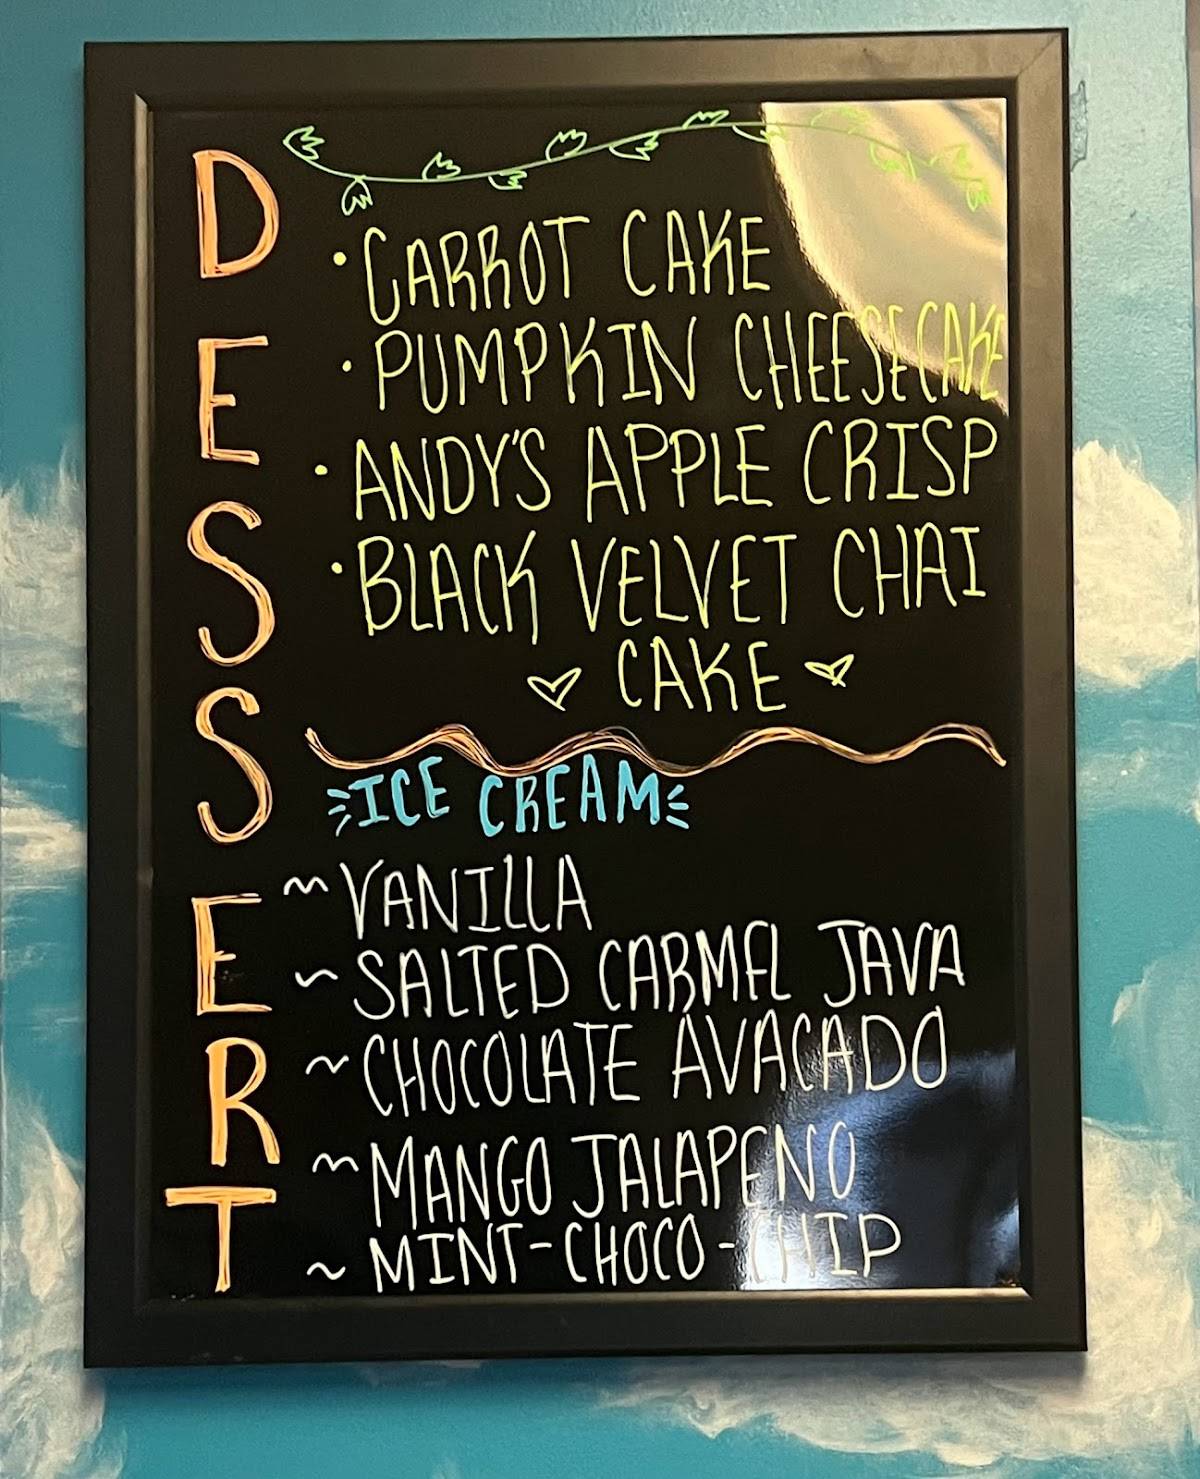 DESSERT
• CARROT CAKE
• PUMPKIN CHEESECAKE
• ANDY'S APPLE CRISP
• BLACK VELVET CHAI
CAKE
ICE CREAM
~ VANILLA
~ SALTED CARMEL JAVA
~ CHOCOLATE AVACADO
~ MANGO JALAPENO
~ MINT-CHOCO-CHIP